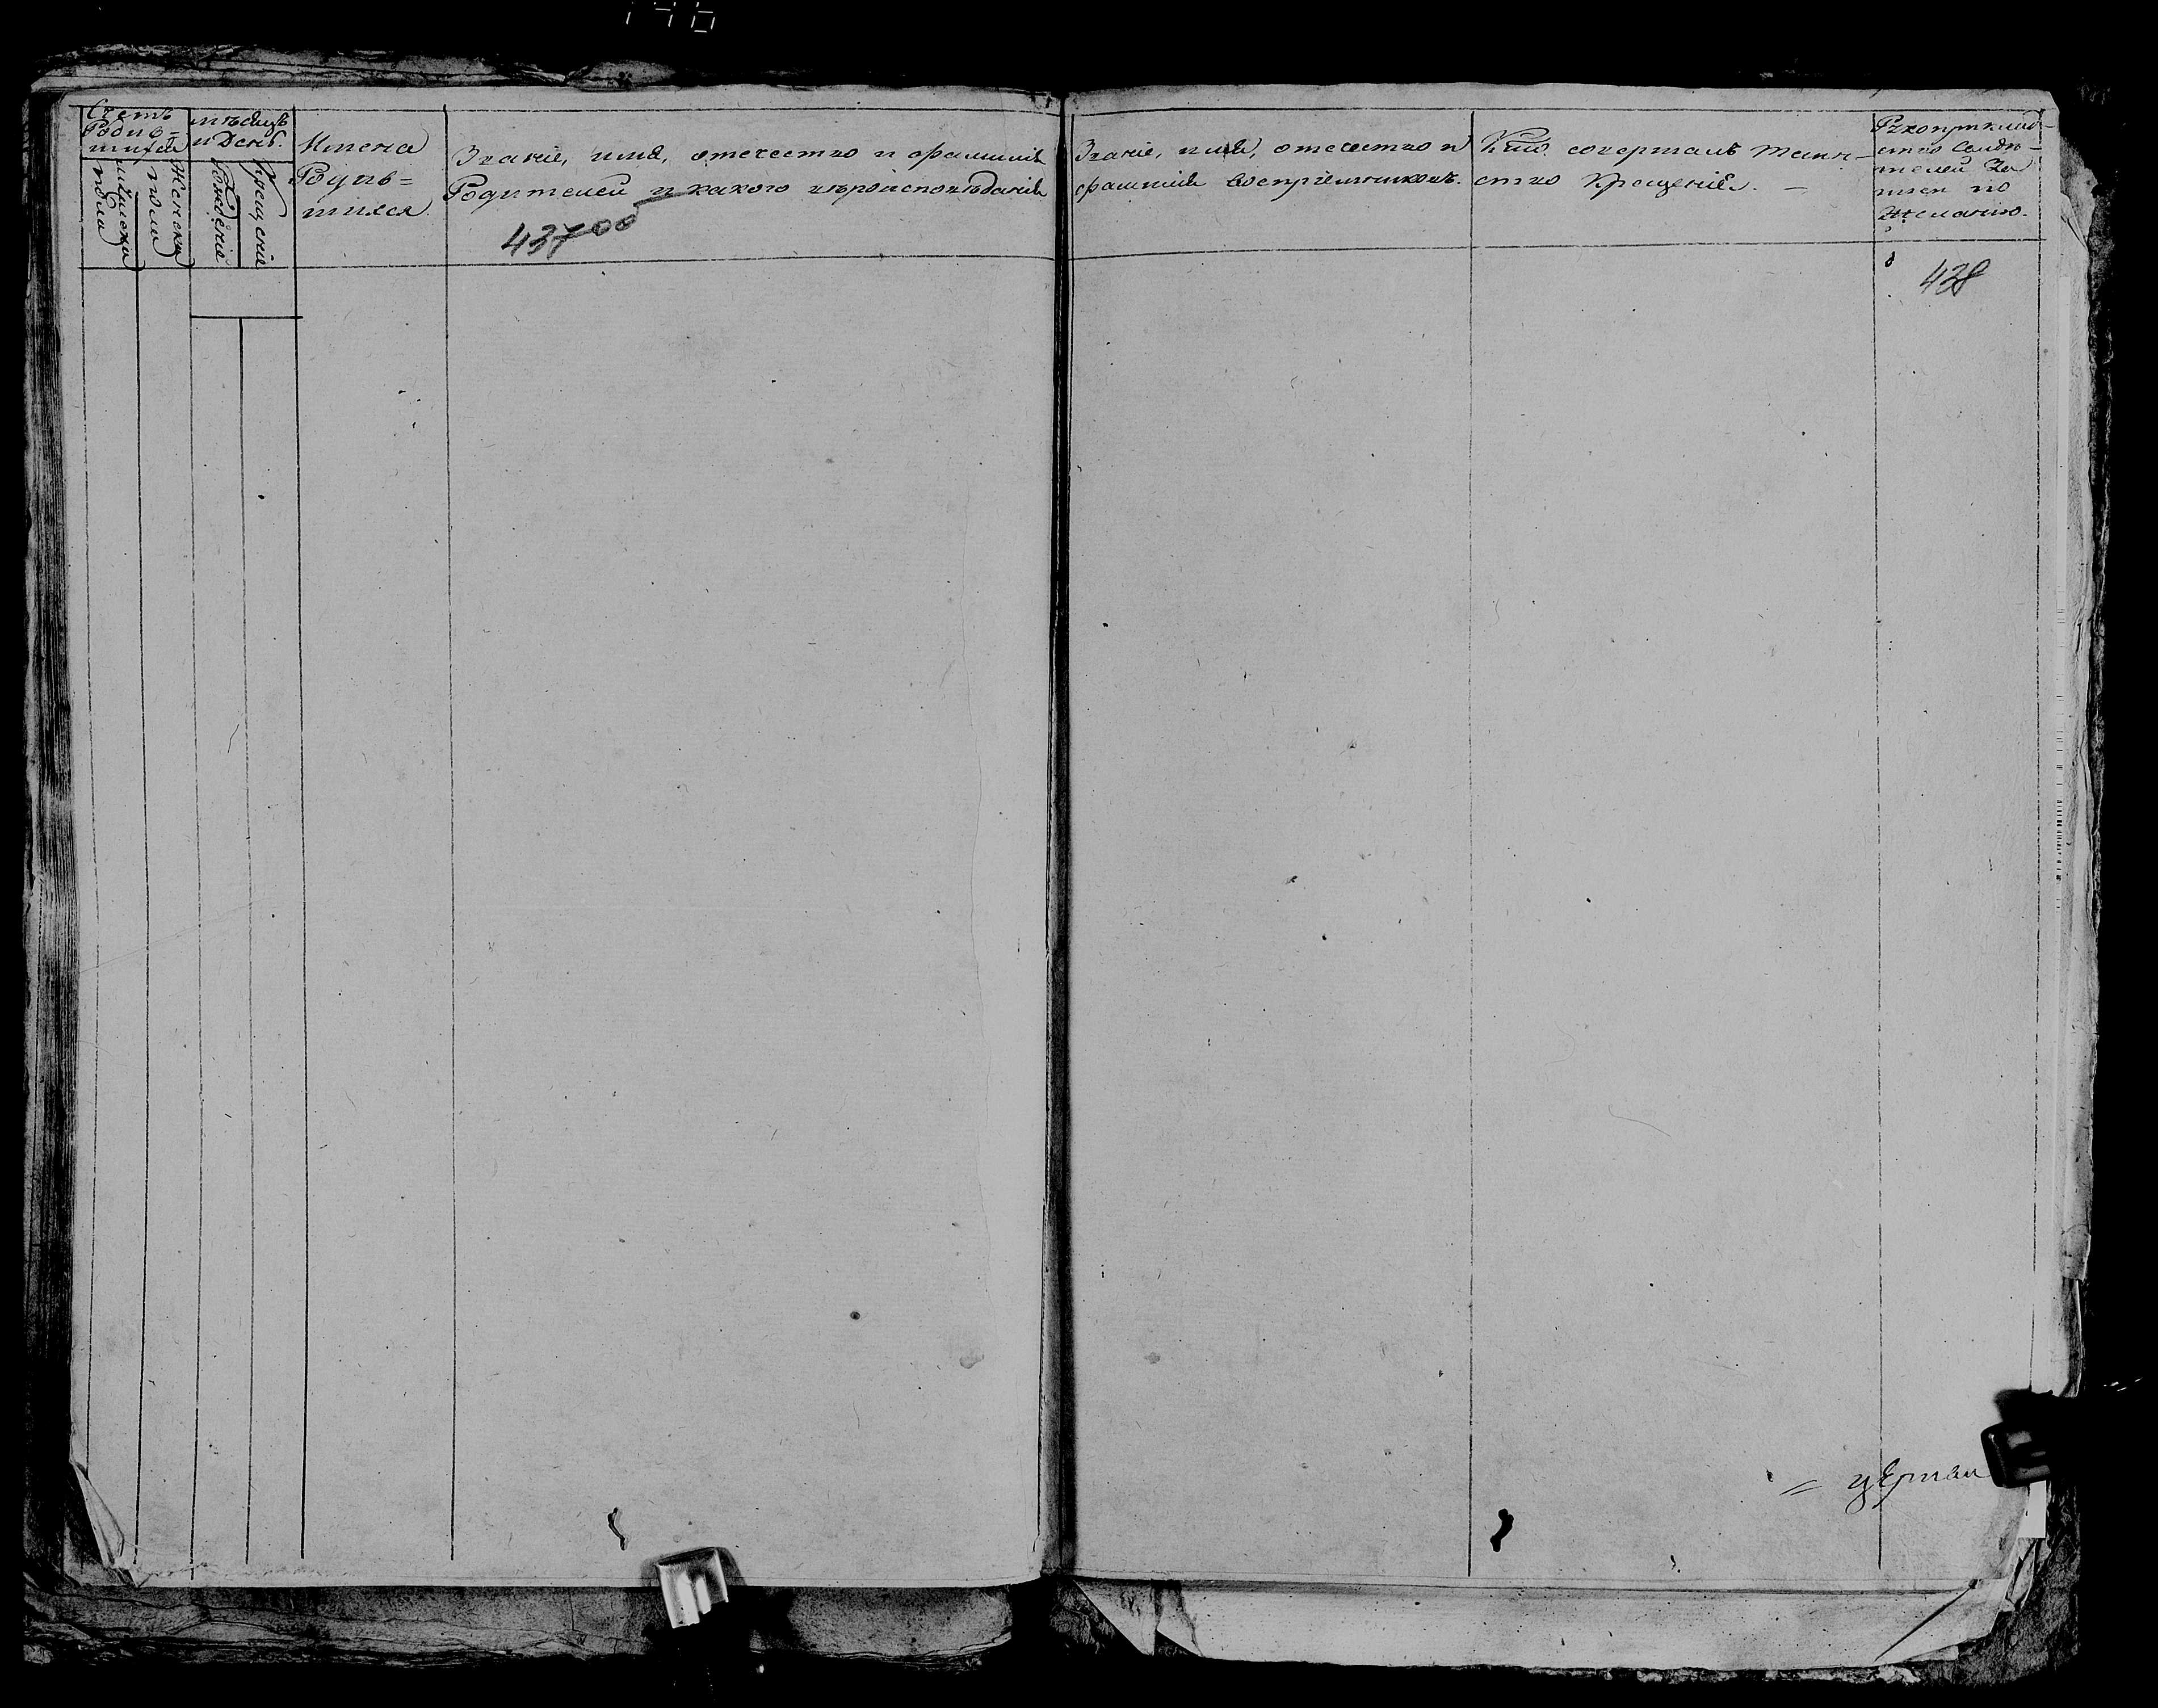 Счетъ
Родив=
шихся
Мужеска
пола
Женска
пола
мѣсяцъ
и День.
Рожденіе
Крещеніе
Имена
Родив=
шихся.
Званіе, имя, отечество и фамилія
Родителей и какого вѣроисповѣданія
437 об
Званіе, имя, отечество и
фамилія воспріемниковъ.
Кто совершалъ таин-
ство крещенія. —
Рукоприклад-
ство свидѣ-
телей за
писи по
желанію.
438